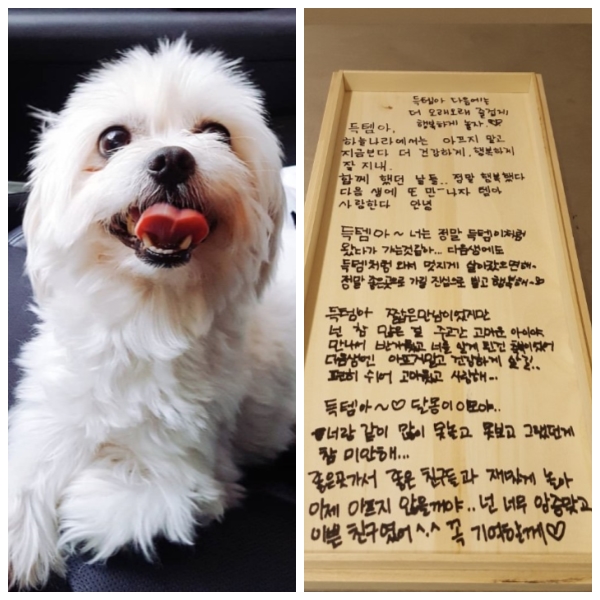 득템아 다음에는
더 오래오래 즐겁게,
행복하게 놀자.♡
득템아,
하늘나라에서는 아프지 말고
지금보다 더 건강하게, 행복하게
잘 지내.
함께 했던 날들.. 정말 행복했다
다음 생에 또 만나자 템아
사랑한다 안녕
득템아~ 너는 정말 득템이처럼
왔다가 가는것같아... 다음생에도
득템처럼 와서 멋지게 살아갔으면해~
정말 좋은곳으로 가길 진심으로 빌고
득템아 짧은만남이었지만
넌 참 많은 걸 주고간 고마운 아이야
만나서 반가웠고 너를 알게 된건
다음생엔 아프지말고 건강하게 살길..
편히 쉬어 고마웠고 사랑해...
득템아~♡ 달몽이 이모야..
너랑 같이 많이 못놀고 못보고 그랬던게
참 미안해...
좋은곳가서 좋은 친구들과 재밌게 놀아
이제 아프지 않을꺼야.. 넌 너무 앙증맞고
이쁜 친구였어^.^ 꼭 기억할께♡